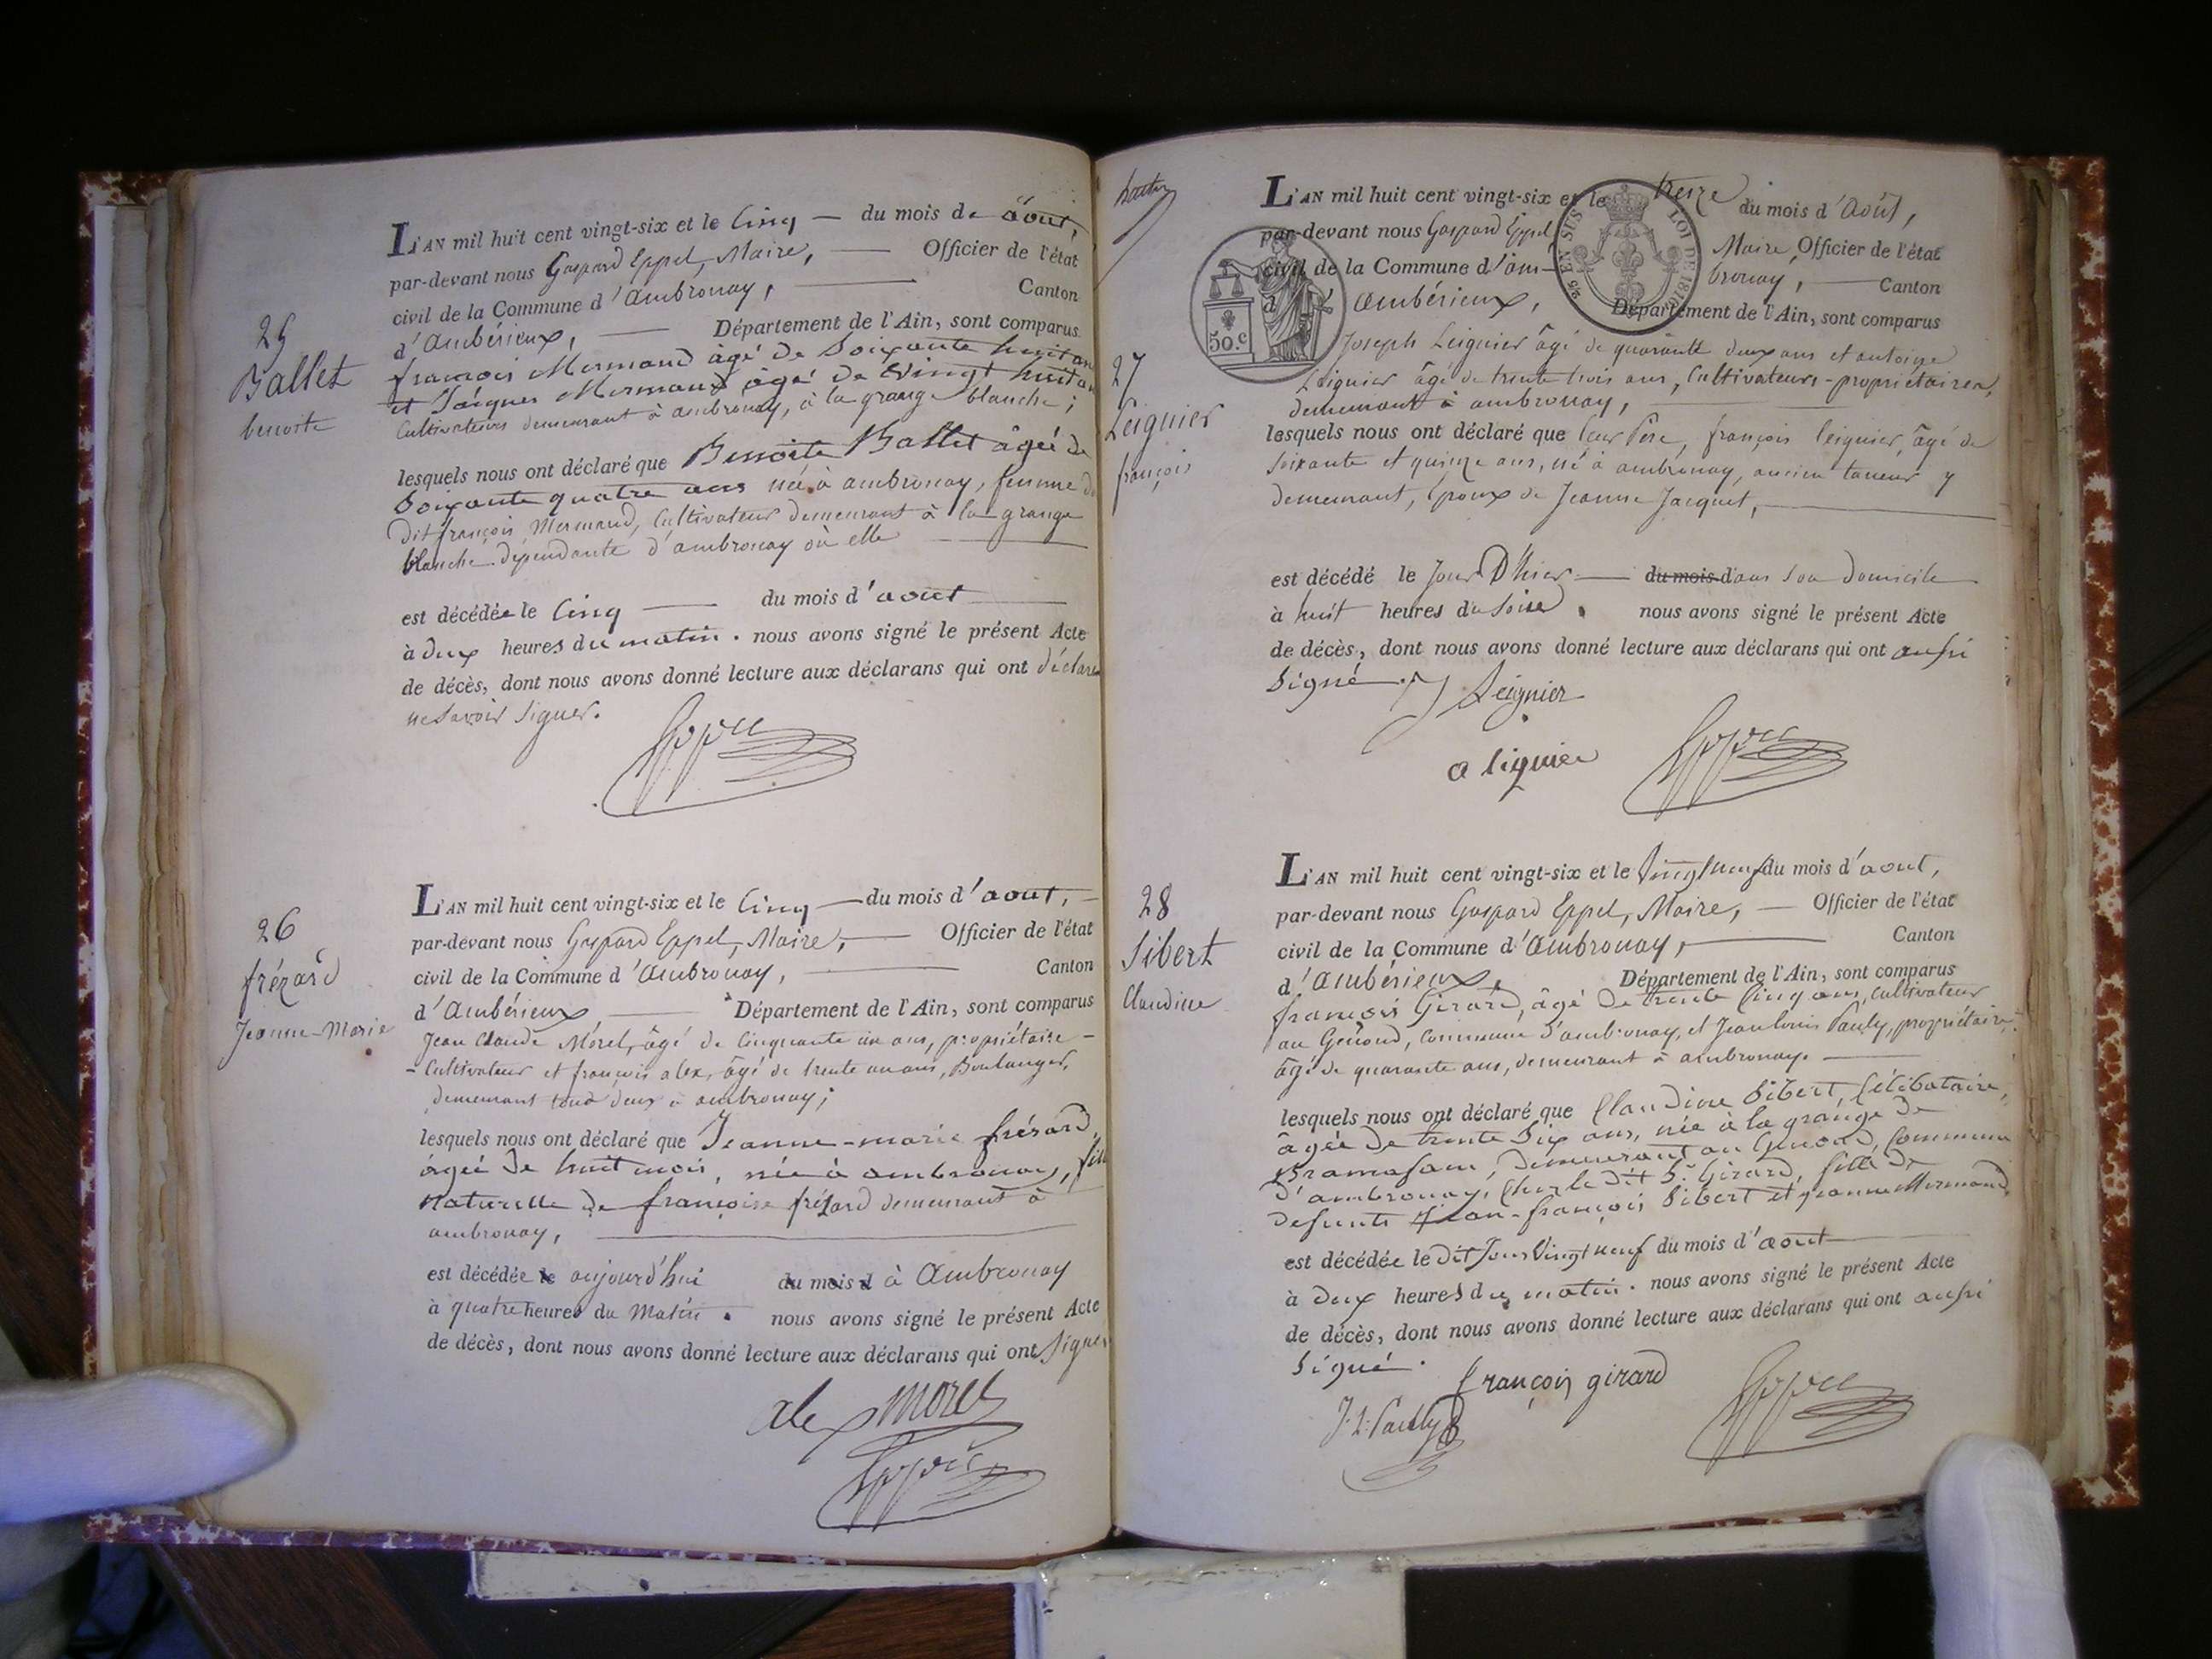 25
Ballet
benoite
L'AN mil huit cent vingt-six et le Cinq — du mois de aout,
par-devant nous Gaspard Eppel, Maire, — Officier de l'état
civil de la Commune d'Ambronay, — Canton
d'Ambérieux, — Département de l'Ain, sont comparus
françois Mermand âgé de Soixante huit ans
et Jacques Mermand âgé de vingt huit ans
Cultivateurs demeurant à ambronay, à la grange blanche;
lesquels nous ont déclaré que Benoite Ballet âgée de
Soixante quatre ans née à ambronay, femme du
dit françois Mermand, Cultivateur demeurant à la grange
blanche dépendante d'ambronay où elle —
est décédée le Cinq — du mois d'aout —
à deux heures du matin. nous avons signé le présent Acte
de décès, dont nous avons donné lecture aux déclarans qui ont déclaré
ne Savoir Signer.
26
frézard
Jeanne-Marie
L'AN mil huit cent vingt-six et le Cinq — du mois d'aout, —
par-devant nous Gaspard Eppel, Maire, — Officier de l'état
civil de la Commune d'Ambronay, — Canton
d'Ambérieux — Département de l'Ain, sont comparus
Jean Claude Morel, âgé de Cinquante un ans, propriétaire -
- Cultivateur et françois alex, âgé de trente un ans, Boulanger,
demeurant tous deux à ambronay;
lesquels nous ont déclaré que Jeanne-marie frézard,
âgée de huit mois, née à ambronay, fille
naturelle de françoise frézard demeurant à
ambronay, —
est décédée le aujourd'hui du mois d à Ambronay
à quatre heures du Matin. nous avons signé le présent Acte
de décès, dont nous avons donné lecture aux déclarans qui ont Signé
alex Morel
Eppel
27
Leignier
françois
L'AN mil huit cent vingt-six et le treize du mois d'Août,
par-devant nous Gaspard Eppel Maire, Officier de l'état
civil de la Commune d'am- bronay, — Canton
d'Ambérieux, Département de l'Ain, sont comparus
5/5 EN SUS LOI DE 1816
50.c
Joseph Leignier âgé de quarante deux ans et antoine
Leignier âgé de trente trois ans, Cultivateurs-propriétaires,
demeurant à ambronay, —
lesquels nous ont déclaré que leur Père, françois leignier, âgé de
soixante et quinze ans, né à ambronay, ancien taneur y
demeurant, Époux de Jeanne Jacquet, —
est décédé le Jour D'hier — du mois dans son domicile
à huit heures du Soir. nous avons signé le présent Acte
de décès, dont nous avons donné lecture aux déclarans qui ont aussi
Signé. J Leignier
a liguier Eppel
28
Sibert
Claudine
L'AN mil huit cent vingt-six et le Vingt neuf du mois d'aout,
par-devant nous Gaspard Eppel, Maire, — Officier de l'état
civil de la Commune d'Ambronay, — Canton
d'Ambérieux, Département de l'Ain, sont comparus
françois Girard, âgé de trente Cinq ans, Cultivateur
au Genoud, Commune d'ambronay, et Jean louis Pauly, propriétaire
âgé de quarante ans, demeurant à ambronay. —
lesquels nous ont déclaré que Claudine Sibert, Célibataire,
âgée de trente Six ans, née à la grange de
Bramafam, demeurant au Genoud, Commune
d'ambronay, Chez le dit Sr. Girard, fille de
defunts Jean-françois Sibert et Jeanne Mermand,
est décédée le dit Jour Vingt neuf du mois d'aout —
à deux heures du matin. nous avons signé le présent Acte
de décès, dont nous avons donné lecture aux déclarans qui ont aussi
Signé. françois girard
J. L. Pauly Eppel